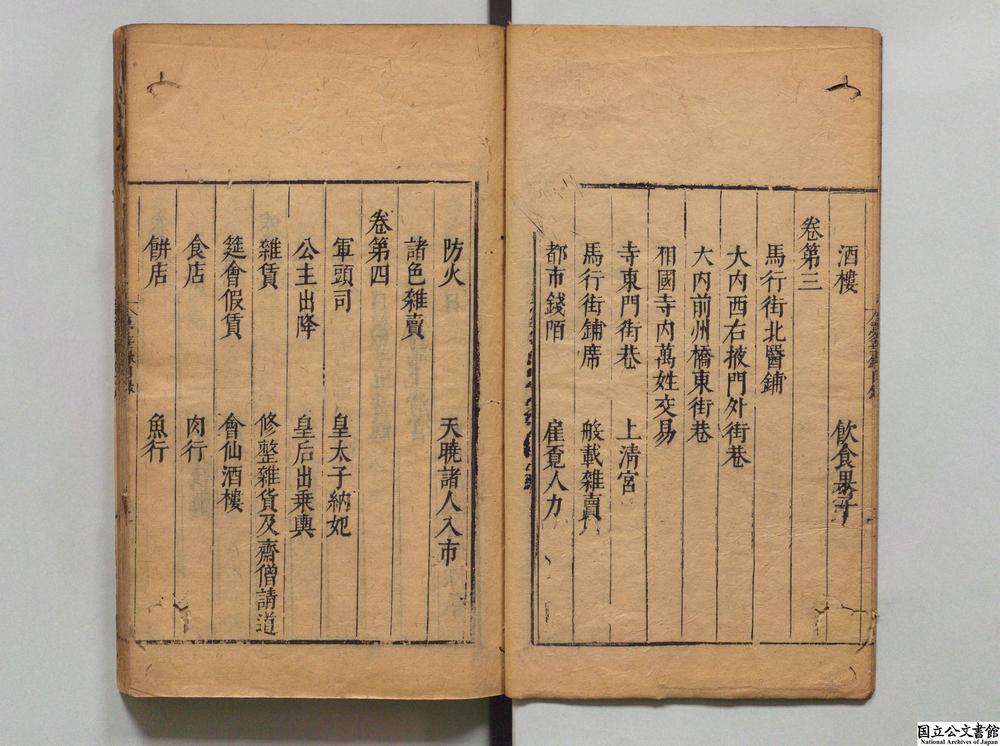 酒樓　飲食果子
卷第三
馬行街北醫鋪
大内西右掖門外街巷
大内前州橋東街巷
相國寺内萬姓交易
寺東門街巷　上清宮
馬行街鋪席　般載雜賣
都市錢陌　雇覓人力
防火　天曉諸人入市
諸色雜賣
卷第四
軍頭司　皇太子納妃
公主出降　皇后出乘輿
雜賃　修整雜貨及齋僧請道
筵會假賃　會仙酒樓
食店　肉行
餅店　魚行
国立公文書館
National Archives of Japan